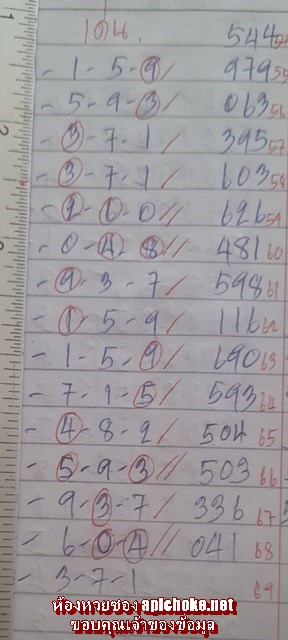 เด่น. 544 54
- 1 - 5 - 9 / 979 55
- 5 - 9 - 3 / 063 56
- 3 - 7 - 1 / 395 57
- 3 - 7 - 1 / 603 58
- 2 - 6 - 0 // 626 59
- 0 - 4 - 8 // 481 60
- 9 - 3 - 7 / 598 61
- 1 - 5 - 9 / 116 62
- 1 - 5 - 9 / 690 63
- 7 - 1 - 5 / 593 64
- 4 - 8 - 2 / 504 65
- 5 - 9 - 3 // 503 66
- 9 - 3 - 7 / 336 67
- 6 - 0 - 4 // 041 68
- 3 - 7 - 1 69
ห้องหวยซอง aplchoke.net
ขอบคุณเจ้าของข้อมูล